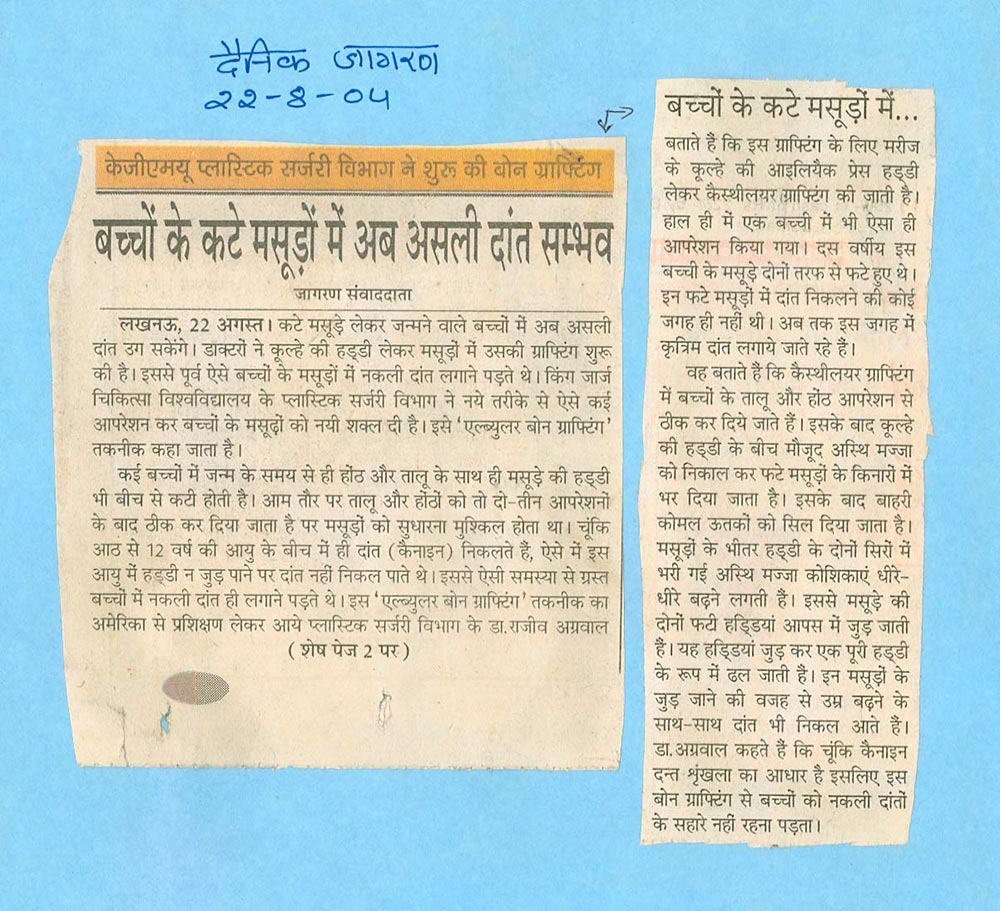 दैनिक जागरण
२२-8-०५
केजीएमयू प्लास्टिक सर्जरी विभाग ने शुरू की बोन ग्राफ्टिंग
बच्चों के कटे मसूड़ों में अब असली दांत सम्भव
जागरण संवाददाता
लखनऊ, 22 अगस्त। कटे मसूड़े लेकर जन्मने वाले बच्चों में अब असली
दांत उग सकेंगे। डाक्टरों ने कूल्हे की हड्डी लेकर मसूड़ों में उसकी ग्राफ्टिंग शुरू
की है। इससे पूर्व ऐसे बच्चों के मसूड़ों में नकली दांत लगाने पड़ते थे। किंग जार्ज
चिकित्सा विश्वविद्यालय के प्लास्टिक सर्जरी विभाग ने नये तरीके से ऐसे कई
आपरेशन कर बच्चों के मसूढ़ों को नयी शक्ल दी है। इसे 'एल्ब्युलर बोन ग्राफ्टिंग'
तकनीक कहा जाता है।
कई बच्चों में जन्म के समय से ही होंठ और तालू के साथ ही मसूड़े की हड्डी
भी बीच से कटी होती है। आम तौर पर तालू और होंठों को तो दो-तीन आपरेशनों
के बाद ठीक कर दिया जाता है पर मसूड़ों को सुधारना मुश्किल होता था। चूंकि
आठ से 12 वर्ष की आयु के बीच में ही दांत (कैनाइन) निकलते हैं, ऐसे में इस
आयु में हड्डी न जुड़ पाने पर दांत नहीं निकल पाते थे। इससे ऐसी समस्या से ग्रस्त
बच्चों में नकली दांत ही लगाने पड़ते थे। इस 'एल्ब्युलर बोन ग्राफ्टिंग' तकनीक का
अमेरिका से प्रशिक्षण लेकर आये प्लास्टिक सर्जरी विभाग के डा.राजीव अग्रवाल
(शेष पेज 2 पर)
बच्चों के कटे मसूड़ों में...
बताते हैं कि इस ग्राफ्टिंग के लिए मरीज
के कूल्हे की आइलियैक प्रेस हड्डी
लेकर कैस्थीलयर ग्राफ्टिंग की जाती है।
हाल ही में एक बच्ची में भी ऐसा ही
आपरेशन किया गया। दस वर्षीय इस
बच्ची के मसूड़े दोनों तरफ से फटे हुए थे।
इन फटे मसूड़ों में दांत निकलने की कोई
जगह ही नहीं थी। अब तक इस जगह में
कृत्रिम दांत लगाये जाते रहे हैं।
वह बताते हैं कि कैस्थीलयर ग्राफ्टिंग
में बच्चों के तालू और होंठ आपरेशन से
ठीक कर दिये जाते हैं। इसके बाद कूल्हे
की हड्डी के बीच मौजूद अस्थि मज्जा
को निकाल कर फटे मसूड़ों के किनारों में
भर दिया जाता है। इसके बाद बाहरी
कोमल ऊतकों को सिल दिया जाता है।
मसूड़ों के भीतर हड्डी के दोनों सिरों में
भरी गई अस्थि मज्जा कोशिकाएं धीरे-
धीरे बढ़ने लगती है। इससे मसूड़े की
दोनों फटी हड्डियां आपस में जुड़ जाती
हैं। यह हड्डियां जुड़ कर एक पूरी हड्डी
के रूप में ढल जाती है। इन मसूड़ों के
जुड़ जाने की वजह से उम्र बढ़ने के
साथ-साथ दांत भी निकल आते है।
डा.अग्रवाल कहते हैं कि चूंकि कैनाइन
दन्त श्रृंखला का आधार है इसलिए इस
बोन ग्राफ्टिंग से बच्चों को नकली दांतों
के सहारे नहीं रहना पड़ता।